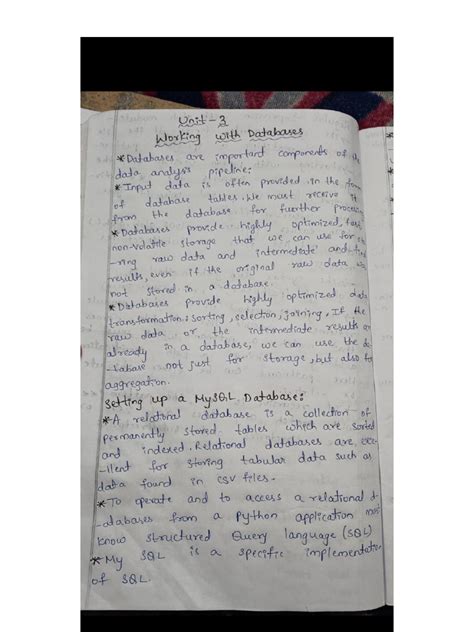 Unit-3
Working with Databases
*Databases are important components of the
data analysis pipeline:
*Input data is often provided in the form
of database tables. We must receive it
from the database for further processing
*Databases provide highly optimized, fast
non-volatile storage that we can use for
-ring raw data and intermediate and
results, even if the original raw data
not stored in a database.
*Databases provide highly optimized data
transformation: sorting, selection, joining, If the
raw data or the intermediate results are
already in a database, we can use the da-
-tabase not just for storage, but also for
aggregation.
Setting up a MySQL Database:
*A relational database is a collection of
permanently stored tables which are sorted
and indexed. Relational databases are exce-
-llent for storing tabular data such as
data found in CSV files.
*To operate and to access a relational d-
-atabases from a Python application must
know structured Query language (SQL)
*My SQL is a specific implementation
of SQL.